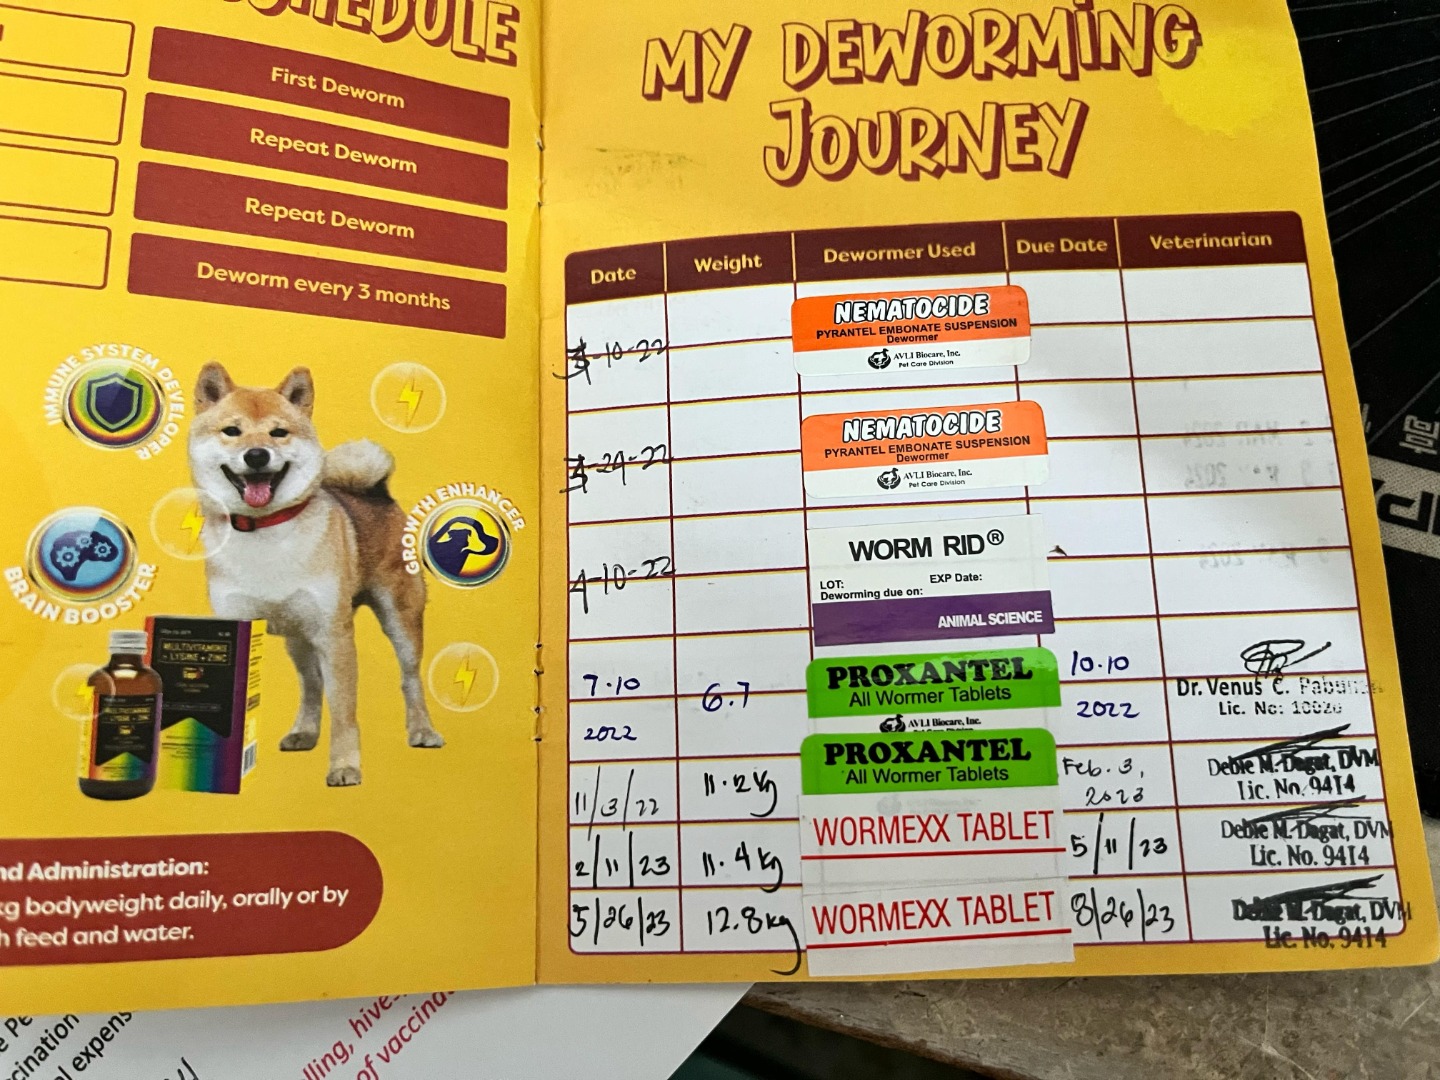 SCHEDULE
First Deworm
Repeat Deworm
Repeat Deworm
Deworm every 3 months
IMMUNE SYSTEM DEVELOPER
GROWTH ENHANCER
BRAIN BOOSTER
MULTIVITAMINS
+ LYSINE + ZINC
nd Administration:
kg bodyweight daily, orally or by
h feed and water.
MY DEWORMING
JOURNEY
Date Weight Dewormer Used Due Date Veterinarian
3-10-22
NEMATOCIDE
PYRANTEL EMBONATE SUSPENSION
Dewormer
AVLI Biocare, Inc.
Pet Care Division
3-24-22
NEMATOCIDE
PYRANTEL EMBONATE SUSPENSION
Dewormer
AVLI Biocare, Inc.
Pet Care Division
4-10-22
WORM RID®
LOT: EXP Date:
Deworming due on:
ANIMAL SCIENCE
7.10
2022
6.7
PROXANTEL
All Wormer Tablets
AVLI Biocare, Inc.
10.10
2022
Dr. Venus C.
Lic. No:
11/3/22
11.2kg
PROXANTEL
All Wormer Tablets
Feb. 3,
2023
Debie M. Dagat, DVM
Lic. No. 9414
2/11/23
11.4kg
WORMEXX TABLET
5/11/23
Debie M. Dagat, DVM
Lic. No. 9414
5/26/23
12.8kg
WORMEXX TABLET
8/26/23
Debie M. Dagat, DVM
Lic. No. 9414
cination
al expens
lling, hive
of vaccinat